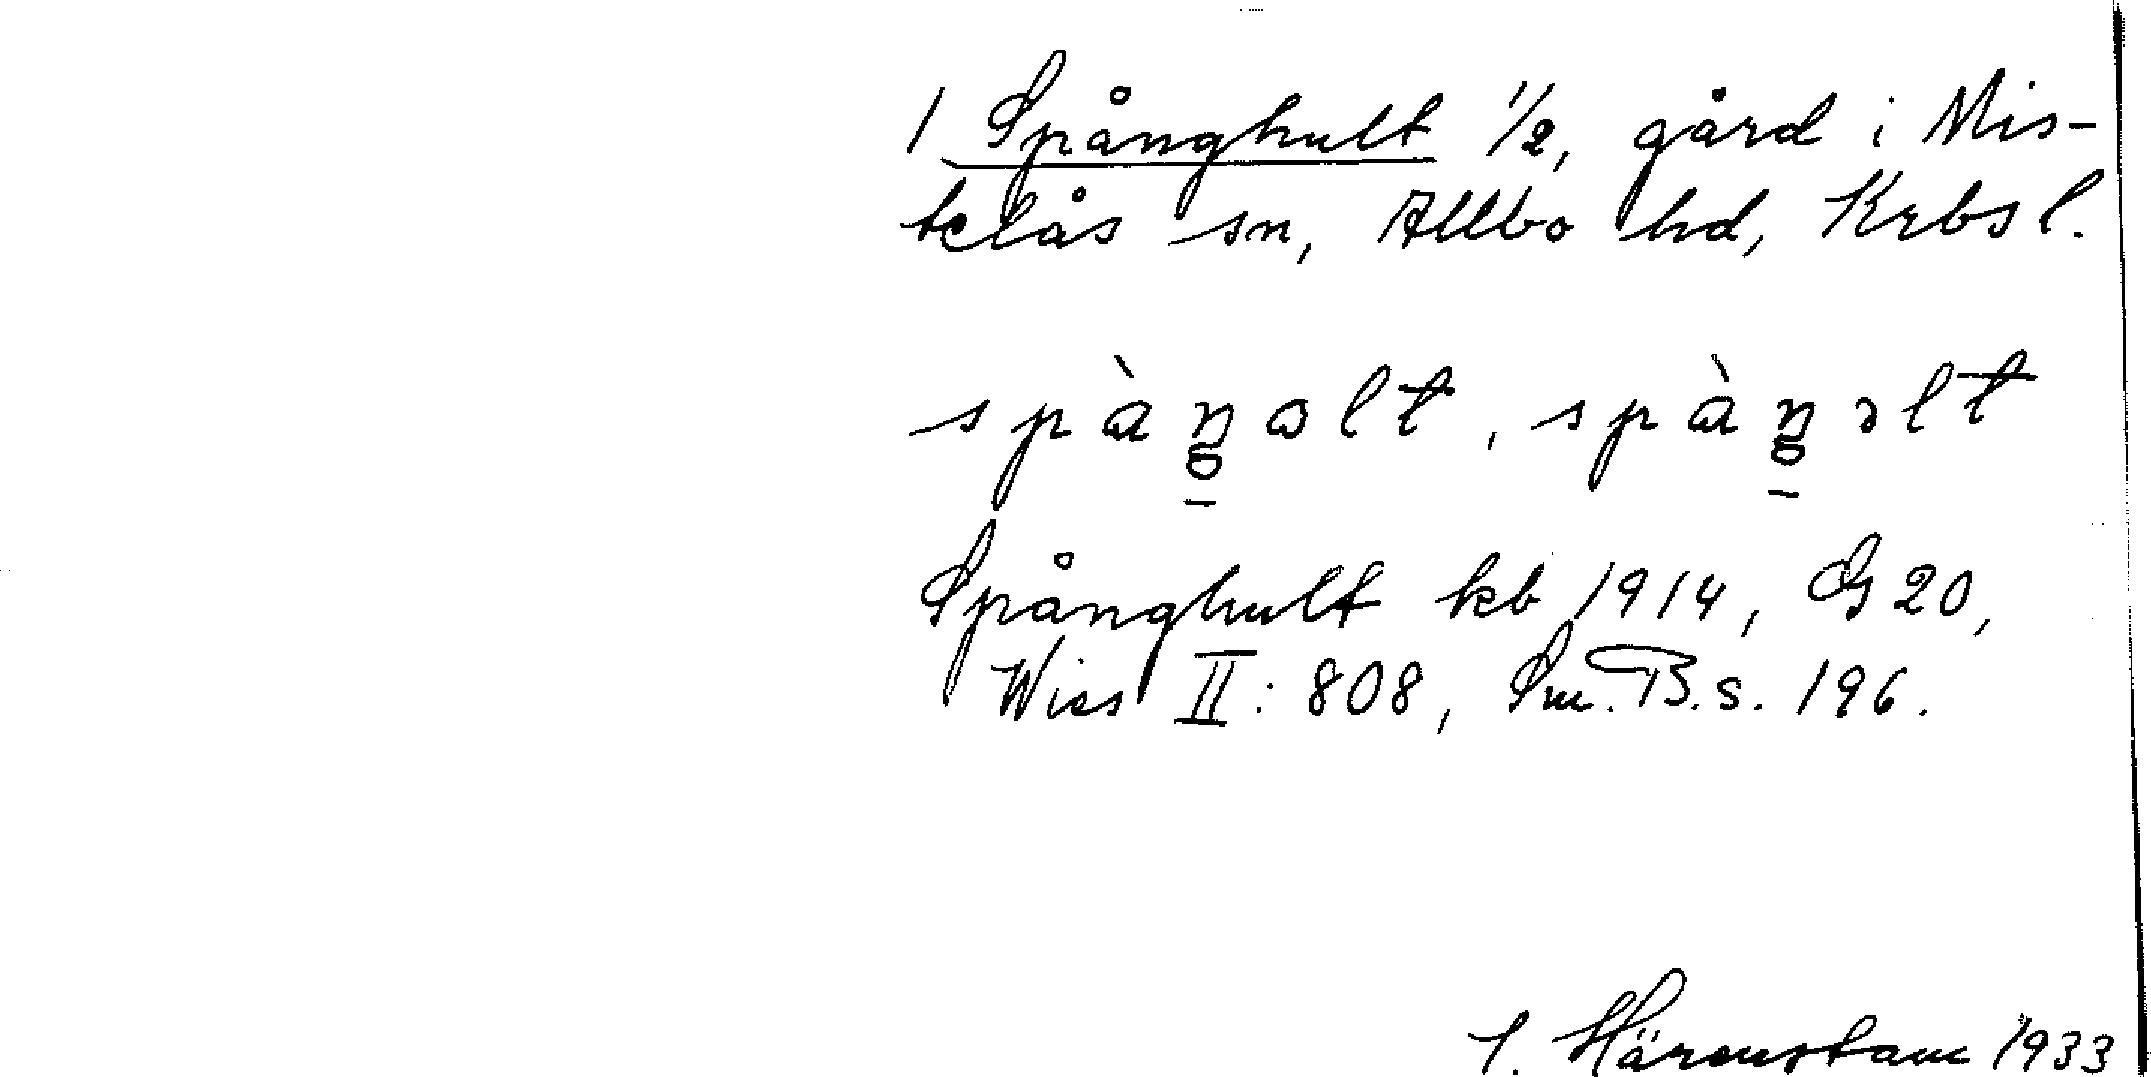 1 Spånghult 1/2, gård i Mis-
telås sn, Allbo hd, Krbs l.
spàŋalt, spàŋəlt
Spånghult kb 1914, G 20,
Wies II: 808, Sm. B. s. 196.
Härenstam 1933